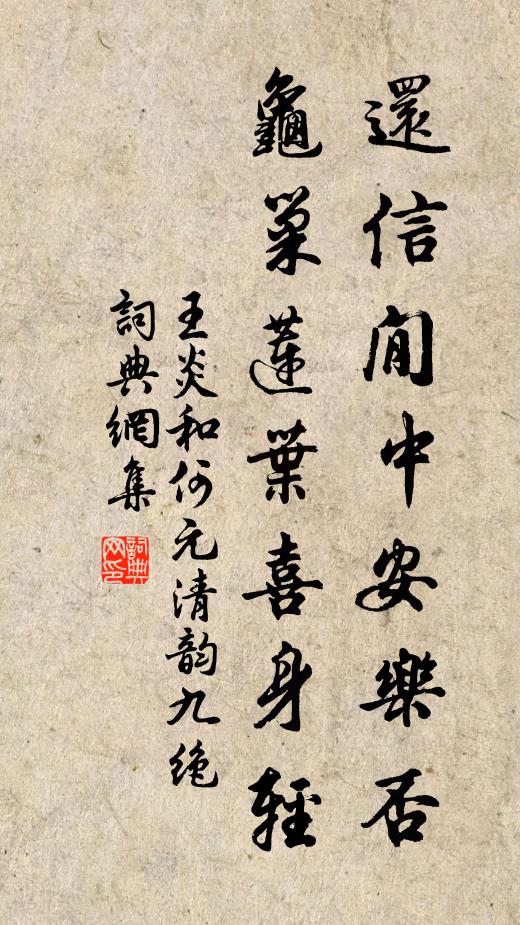 還信閒中安樂否
龜巢蓮葉喜身輕
王炎和何元清韵九绝
詞典網集
詞典网印